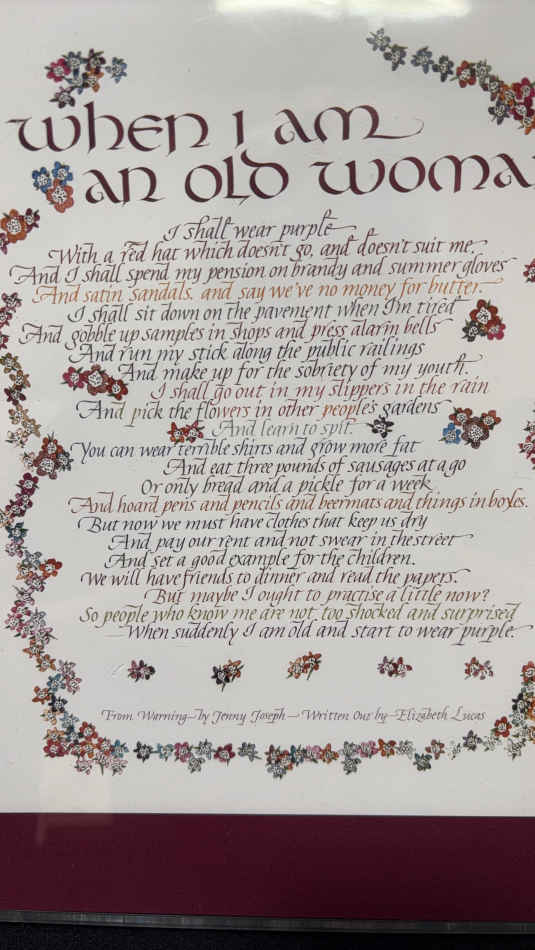 When I am
an old woma
I shall wear purple
With a red hat which doesn't go, and doesn't suit me.
And I shall spend my pension on brandy and summer gloves
And satin sandals, and say we've no money for butter.
I shall sit down on the pavement when I'm tired
And gobble up samples in shops and press alarm bells
And run my stick along the public railings
And make up for the sobriety of my youth.
I shall go out in my slippers in the rain
And pick the flowers in other people's gardens
And learn to spit.
You can wear terrible shirts and grow more fat
And eat three pounds of sausages at a go
Or only bread and a pickle for a week
And hoard pens and pencils and beermats and things in boxes.
But now we must have clothes that keep us dry
And pay our rent and not swear in the street
And set a good example for the children.
We will have friends to dinner and read the papers.
But maybe I ought to practise a little now?
So people who know me are not too shocked and surprised
When suddenly I am old and start to wear purple.
From Warning—by Jenny Joseph—Written Out by—Elizabeth Lucas